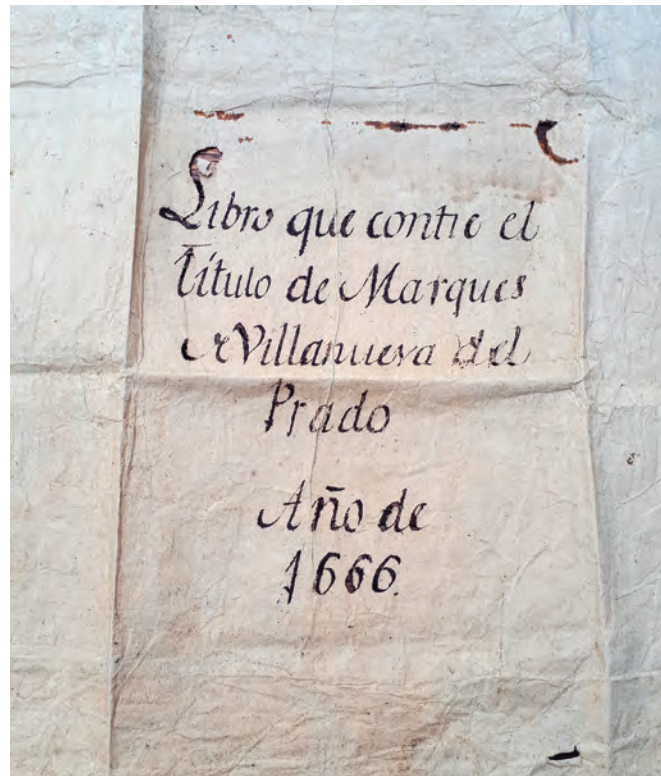 Libro que contie el
Título de Marques
de Villanueva del
Prado
Año de
1666.